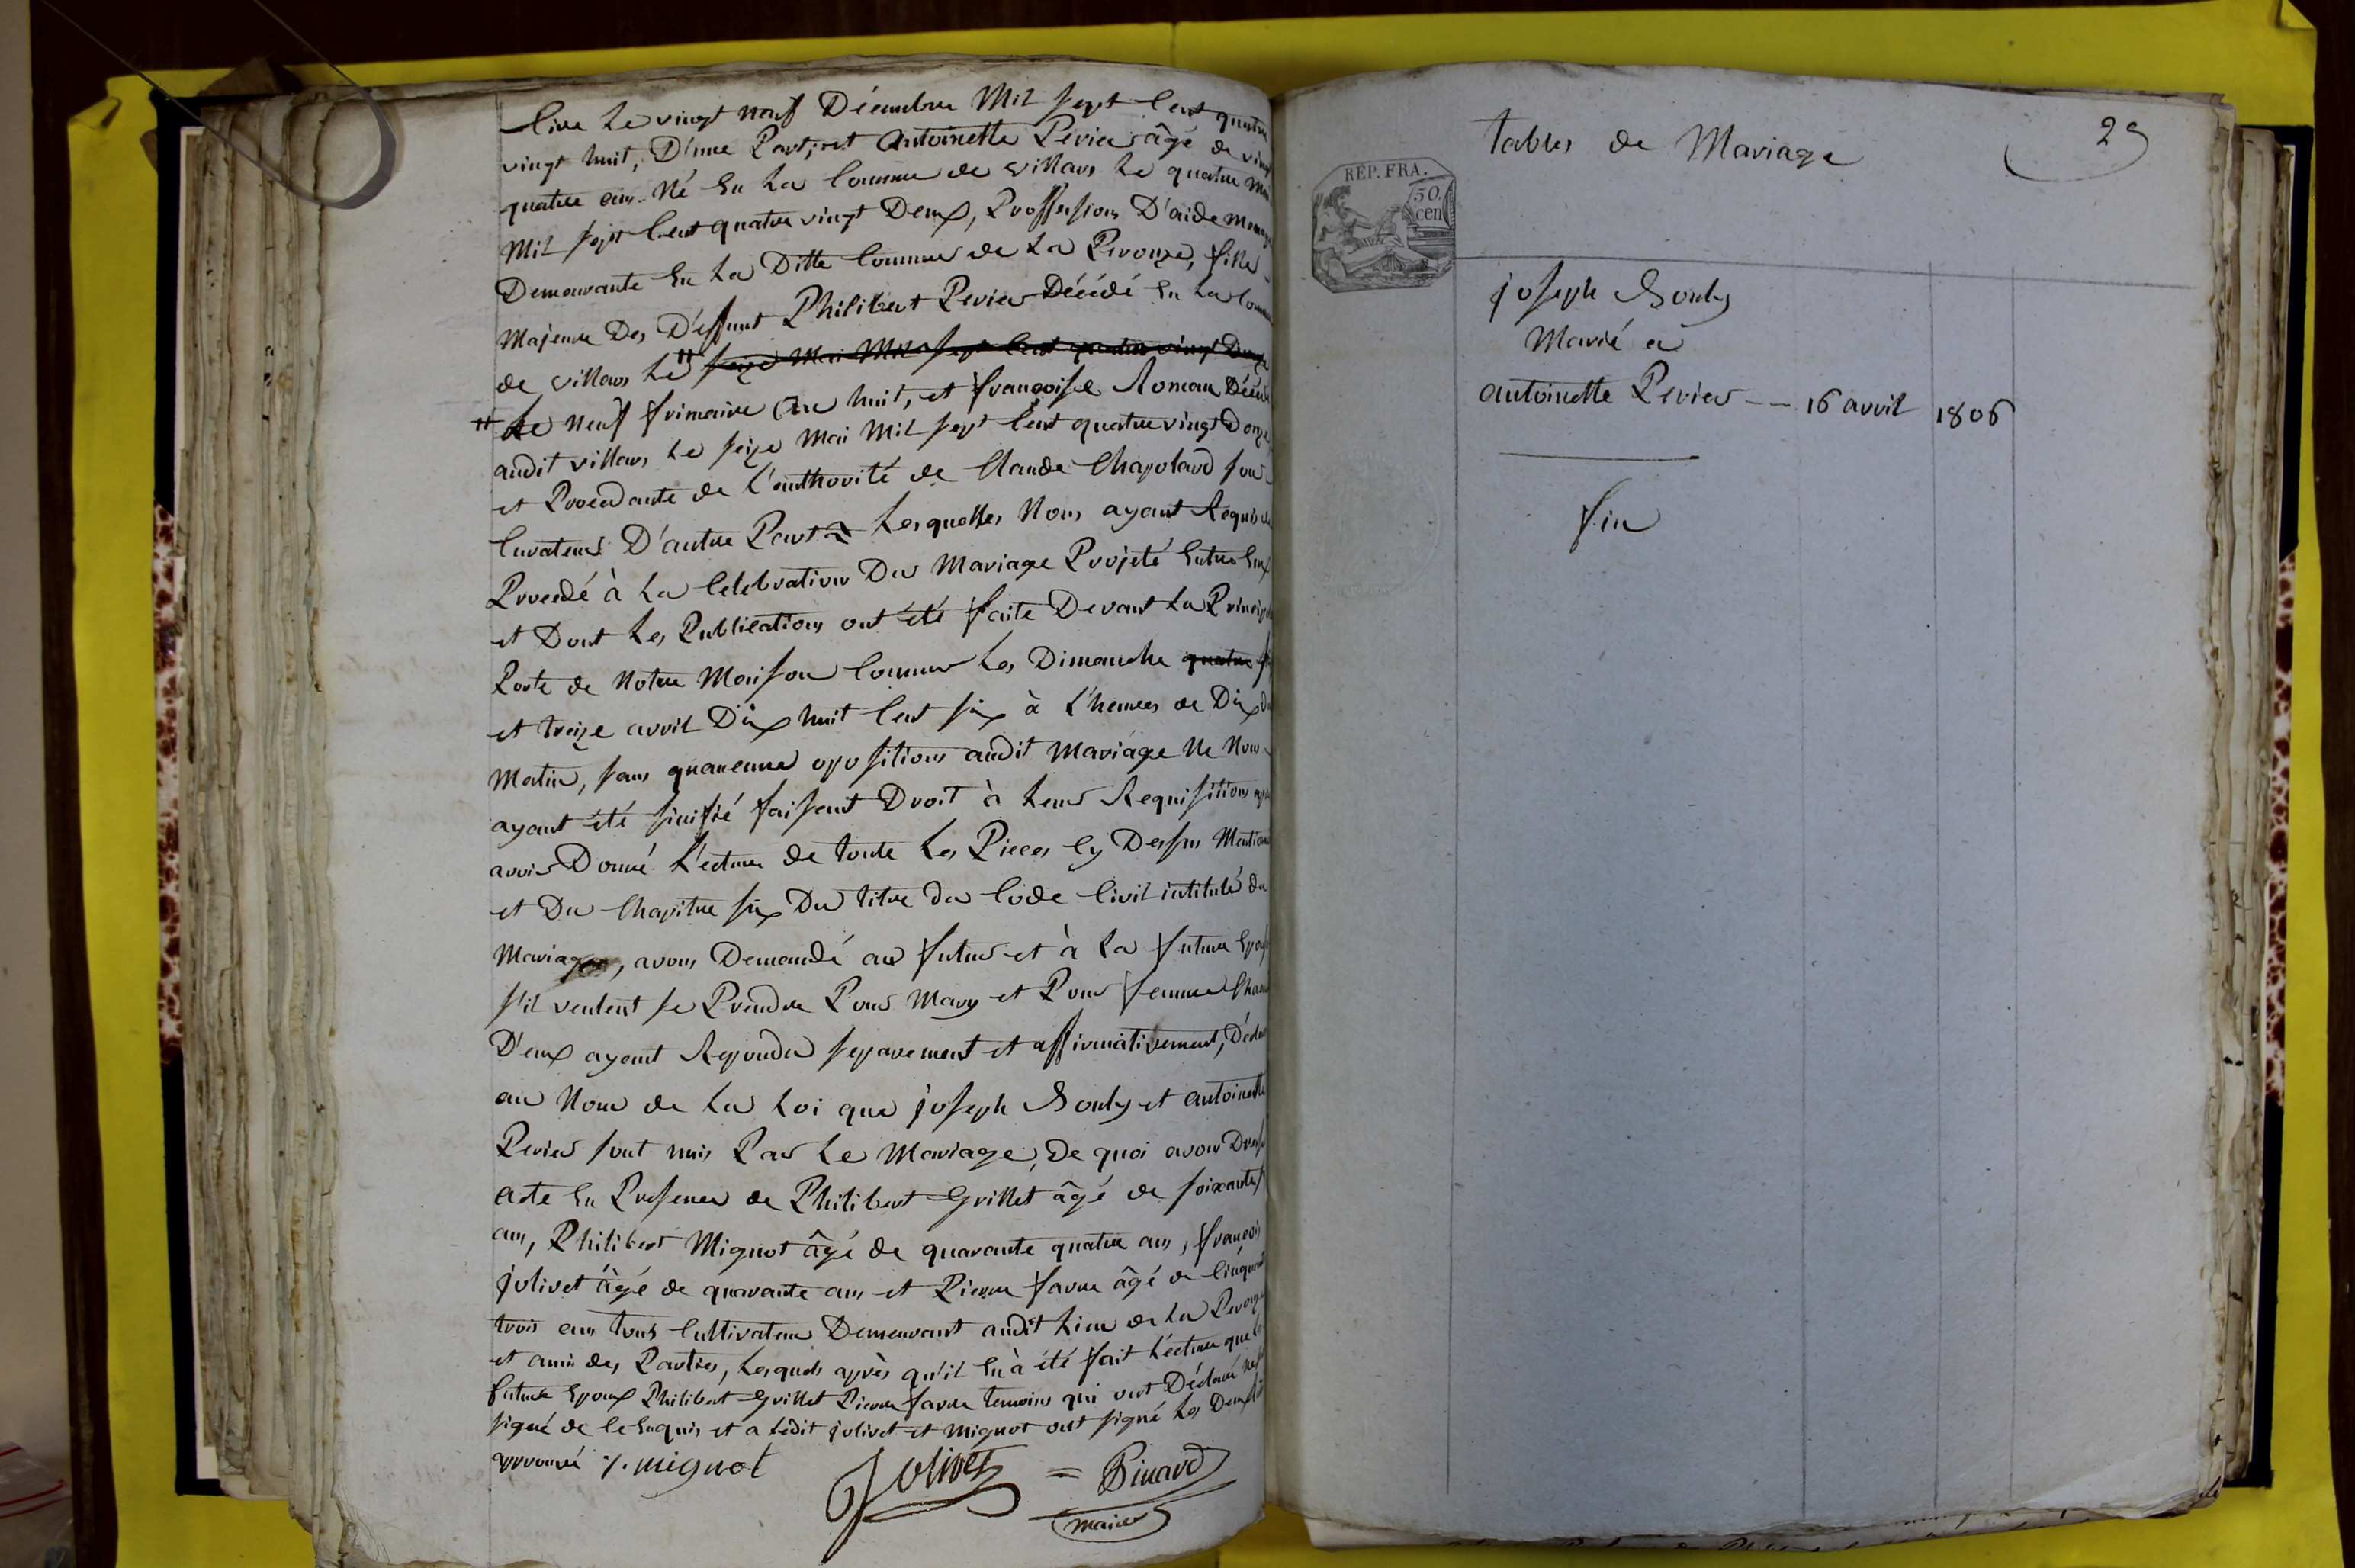 live le vingt neuf Décembre Mil sept Cent quatre
vingt huit, D'une Part, et antoinette Perier âgé de vingt
quatre ans Né En La Commune de villars Le quatre Mai
Mil sept Cent quatre vingt Deux, Proffession D'aide
Demeurante En La Ditte Commune de La Peronze, fille
Majeure Des Deffunt Philibert Perier Décédé En La
de villars Le " seize Mai Mil sept Cent quatre vingt Douze
" Le Neuf frimaire an huit, et françoise Roman
audit villars Le seize Mai Mil sept Cent quatre vingt Douze
et Procédante de L'authorité de Claude Chapoland son
Curateur D'autre Part Lesquelles Nous ayant Requis de
Procedé à La Celebration Du Mariage Projeté Entre Eux
et Dont Les Publications ont été faite Devant La
Porte de Notre Maison Commune Les Dimanche quatre
et treize avril Dix huit Cent six à L'heures de Dix du
Matin, sans quaucune opositions audit Mariage Ne Nous
ayant été sinifié faisant Droit à Leur Requisitions
avoir Donné L'ecture de toute Les Pieces Cy Dessus
et Du Chapitre six Du titre du Code Civil intitulé du
Mariage, avons Demandé au futur et à La future
s'il veulent se Prendre Pour Mary et Pour femme
D'eux ayant Repondu separement et affirmativement,
au Nom de La Loi que joseph Bouly et antoinette
Perier sont unis Par Le Mariage, De quoi avons
acte En Presence de Philibert Grillet âgé de soixante
ans, Philibert Mignot âgé de quarante quatre ans, françois
jolivet âgé de quarante ans et Pierre favre âgé de Cinquante
trois ans tous Cultivateur Demeurant audit Lieu de La
et amis des Parties, Lesquels après qu'il En à été fait L'ecture que
future Epoux Philibert Grillet Pierre favre temoins qui ont Déclaré
signé de Ce Enquis et a Ledit jolivet et Mignot ont signé Les
approuvé p. mignot Jolivet = Pinard
maire
tables de Mariage
29
REP. FRA.
50.
cen
joseph Bouly
Marié a
antoinette Perier -- 16 avril 1806
fin